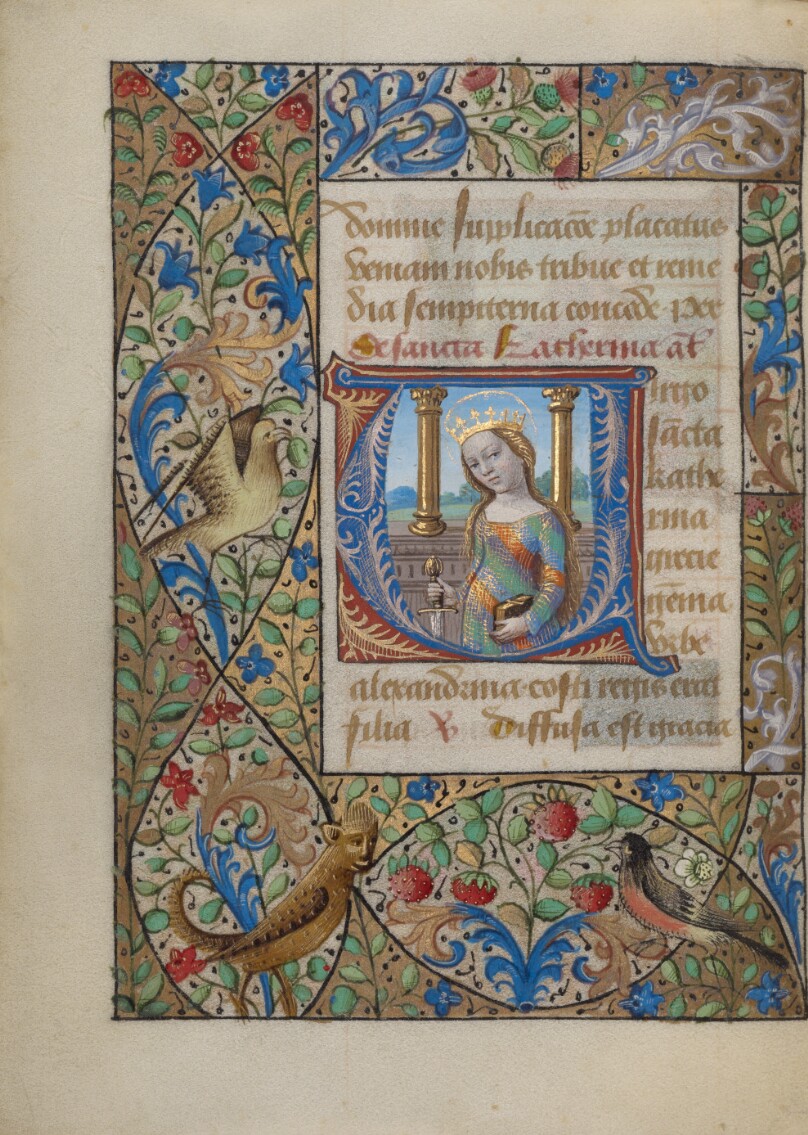 domine suplicacõe placatus
veniam nobis tribue et reme
dia sempiterna concede. Per
De sancta Katherina añ
Virgo
sãcta
kathe
rina
grecie
gẽma.
vrbe
alexandrina. costi regis erat
filia. V. Diffusa est gracia